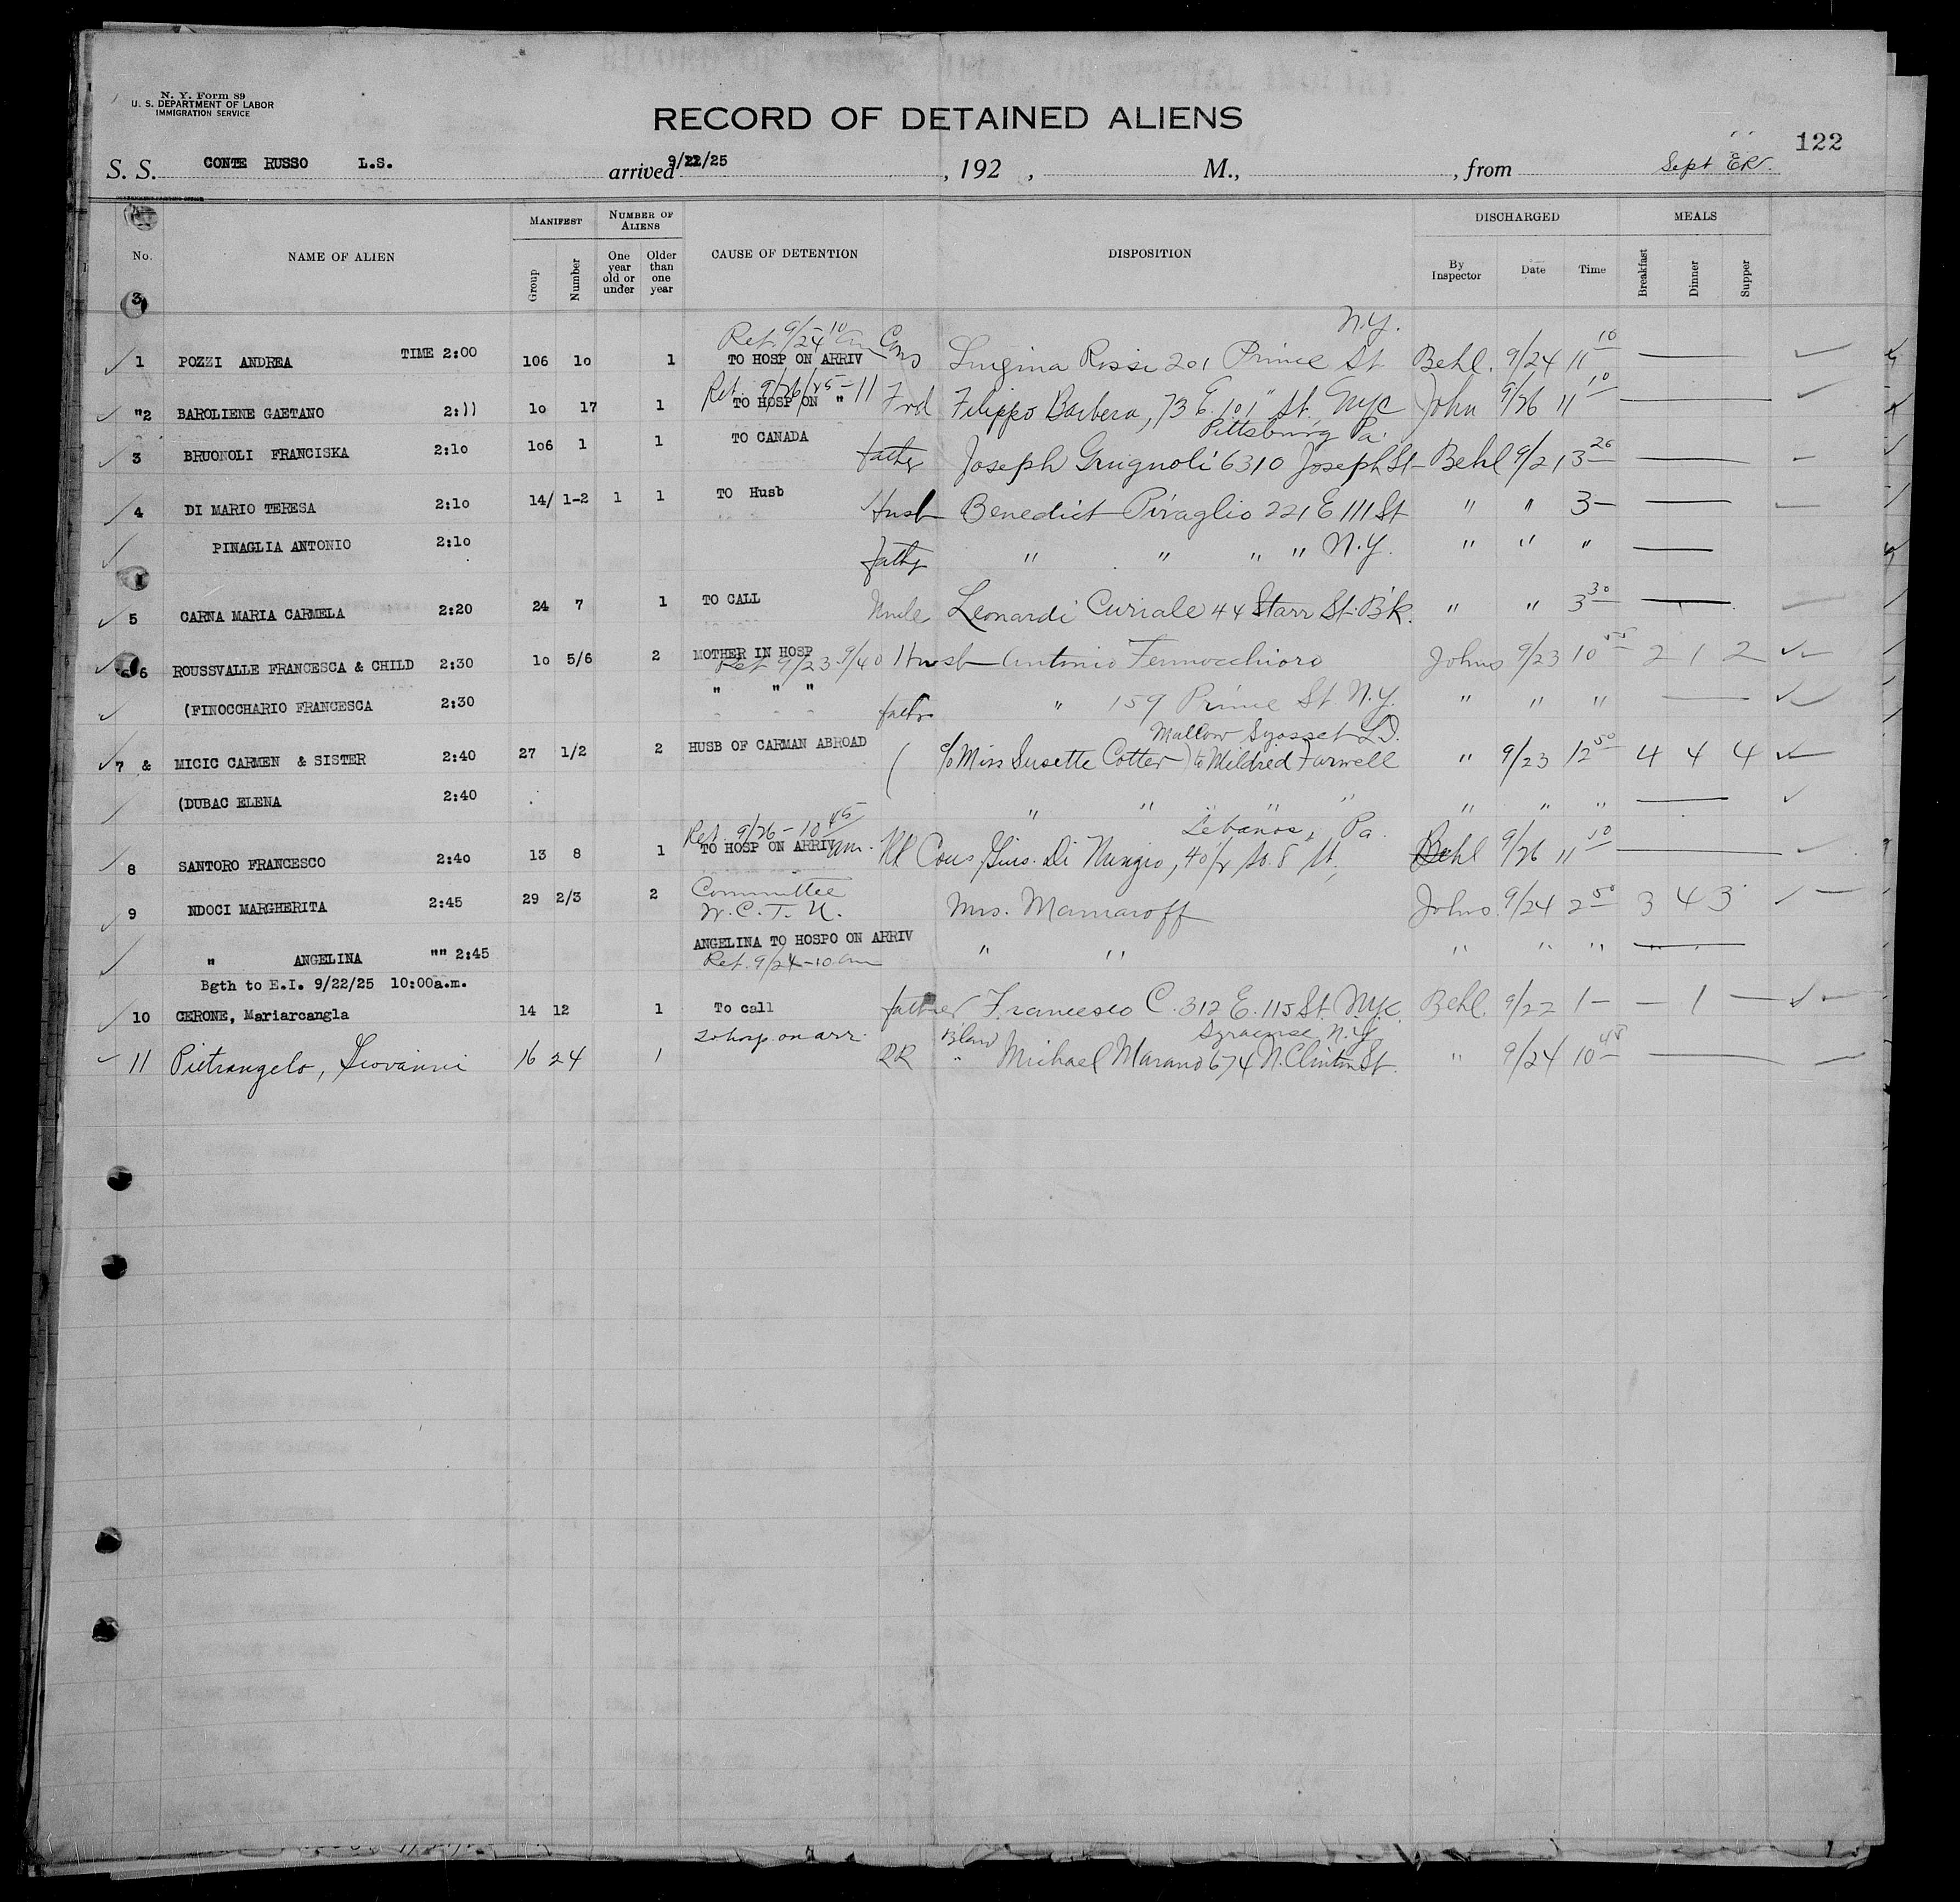 N. Y. Form 89
U. S. DEPARTMENT OF LABOR
IMMIGRATION SERVICE
RECORD OF DETAINED ALIENS
122
S. S. CONTE RUSSO L.S. arrived 9/21/25 , 192 , M., , from Sept ER.
No. NAME OF ALIEN MANIFEST Group Number NUMBER OF ALIENS One year old or under Older than one year CAUSE OF DETENTION DISPOSITION DISCHARGED By Inspector Date Time MEALS Breakfast Dinner Supper
Ret. 9/24 10 am N.Y.
1 POZZI ANDREA TIME 2:00 106 10 1 TO HOSP ON ARRIV Cous Luigina Rossi 201 Prince St Behl. 9/24 11 10
Ret. 9/26/25-11
"2 BAROLIENE GAETANO 2:)) 10 17 1 TO HOSP ON " Frd Filippo Barbera, 73 E. 101" St. NYC John 9/26 11 10
Pittsburg Pa.
3 BRUONOLI FRANCISKA 2:10 106 1 1 TO CANADA father Joseph Grugnoli 6310 Joseph St Behl 9/21 3 20
4 DI MARIO TERESA 2:10 14/ 1-2 1 1 TO Husb Husb Benedict Piraglio 221 E 111 St " " 3-
PINAGLIA ANTONIO 2:10 father " " " " N.Y. " " "
5 CARNA MARIA CARMELA 2:20 24 7 1 TO CALL Uncle Leonardi Curiale 44 Starr St. B'k. " " 3 30
6 ROUSSVALLE FRANCESCA & CHILD 2:30 10 5/6 2 MOTHER IN HOSP Husb Antonio Fennocchioro Johns 9/23 10 55 2 1 2
Ret 9/23 9/40
(FINOCCHARIO FRANCESCA 2:30 " " " father " 159 Prince St N.Y. " " "
Syosset L.I.
7 & MICIC CARMEN & SISTER 2:40 27 1/2 2 HUSB OF CARMAN ABROAD ( c/o Miss Susette Cotter) to Mildred Farwell " 9/23 12 50 4 4 4
(DUBAC ELENA 2:40 " " " " " " "
Ret. 9/26-10 45 am. Lebanon, Pa.
8 SANTORO FRANCESCO 2:40 13 8 1 TO HOSP ON ARRIV Cous Gius. Di Nungio, 40 1/2 So. 8" St, Behl 9/26 11 10
9 NDOCI MARGHERITA 2:45 29 2/3 2 Committee W.C.T.U. Mrs. Mamaroff Johns. 9/24 2 50 3 4 3
" ANGELINA "" 2:45 ANGELINA TO HOSPO ON ARRIV " " " " "
Ret. 9/24-10 am
Bgth to E.I. 9/22/25 10:00a.m.
10 CERONE, Mariarcangla 14 12 1 To call father Francesco C. 312 E. 115 St. N.Y.C. Behl. 9/22 1- 1
To hosp. on arr. B'law Syracuse N.Y.
11 Pietrangelo, Giovanni 16 24 1 RR " Michael Marano 674 N. Clinton St. " 9/24 10 45